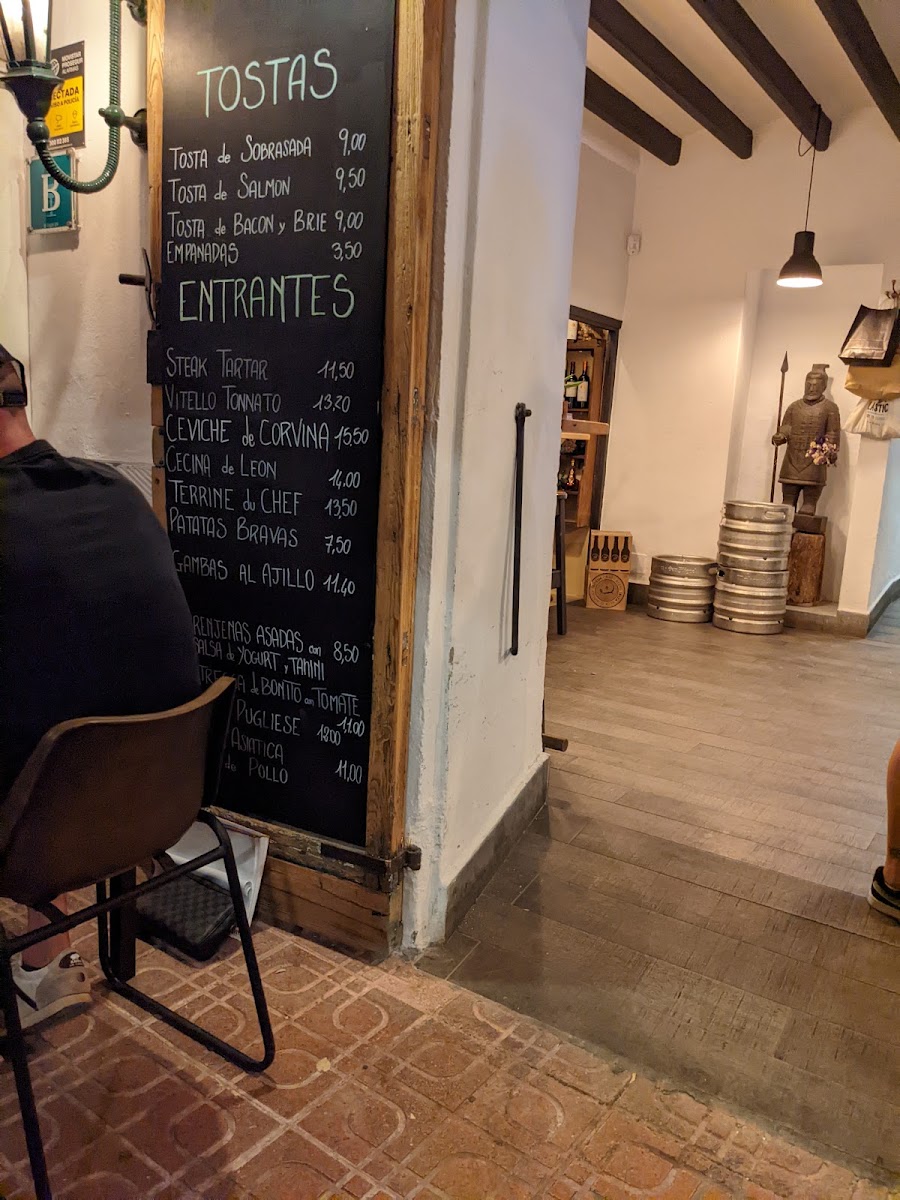 TOSTAS
TOSTA de SOBRASADA 9,00
TOSTA de SALMON 9,50
TOSTA de BACON y BRIE 9,00
EMPANADAS 3,50
ENTRANTES
STEAK TARTAR 11,50
VITELLO TONNATO 13,20
CEVICHE de CORVINA 15,50
CECINA de LEON 14,00
TERRINE du CHEF 13,50
PATATAS BRAVAS 7,50
GAMBAS AL AJILLO 11,40
RENJENAS ASADAS con 8,50
SALSA de YOGURT y TAHINI
de BONITO con TOMATE
11,00
PUGLIESE 12,00
ASIATICA
de POLLO 11,00
MOVISTAR
PROSEGUR
ALARMAS
CTADA
B